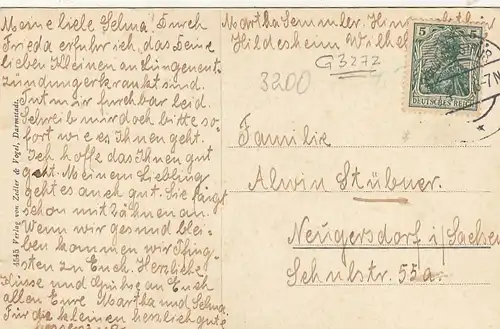 Meine liebe Selma! Durch
Frieda erfuhr ich, das Deine
lieben Kleinen an Lungenent
zündung erkrankt sind.
Tut mir furchbar leid.
Schreib mir doch bitte so-
fort wie es Ihnen geht.
Ich hoffe das Ihnen gut
geht. Meinem Liebling
geht es auch gut. Sie fängt
schon mit Zähnen an.
Wenn wir gesund blei-
ben kommen wir Pfing-
sten zu Euch. Herzliche
Grüsse und Küsse an Euch
allen Eure Martha und Selma.
Für die kleinen herzlich gute
Martha Semmler,
Hildesheim Wilhel
G3272
3200
5 5
DEUTSCHES REICH
Familie
Alwin Stübner.
Neugersdorf i/Sachsen
Schulstr. 55a.
4545 Verlag von Zedler & Vogel, Darmstadt.